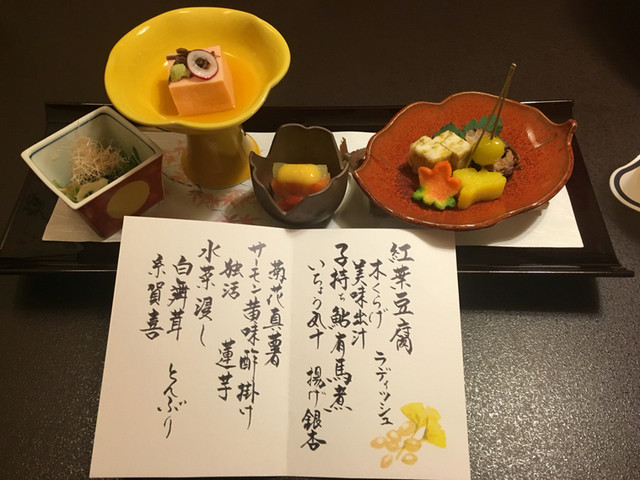 紅葉豆腐
木くらげ ラディッシュ
美味出汁
子持ち鮎有馬煮
いちょう丸十 揚げ銀杏
菊花真薯
サーモン黄味酢掛け
独活 蓮芋
水菜浸し
白舞茸 とんぶり
糸賀喜